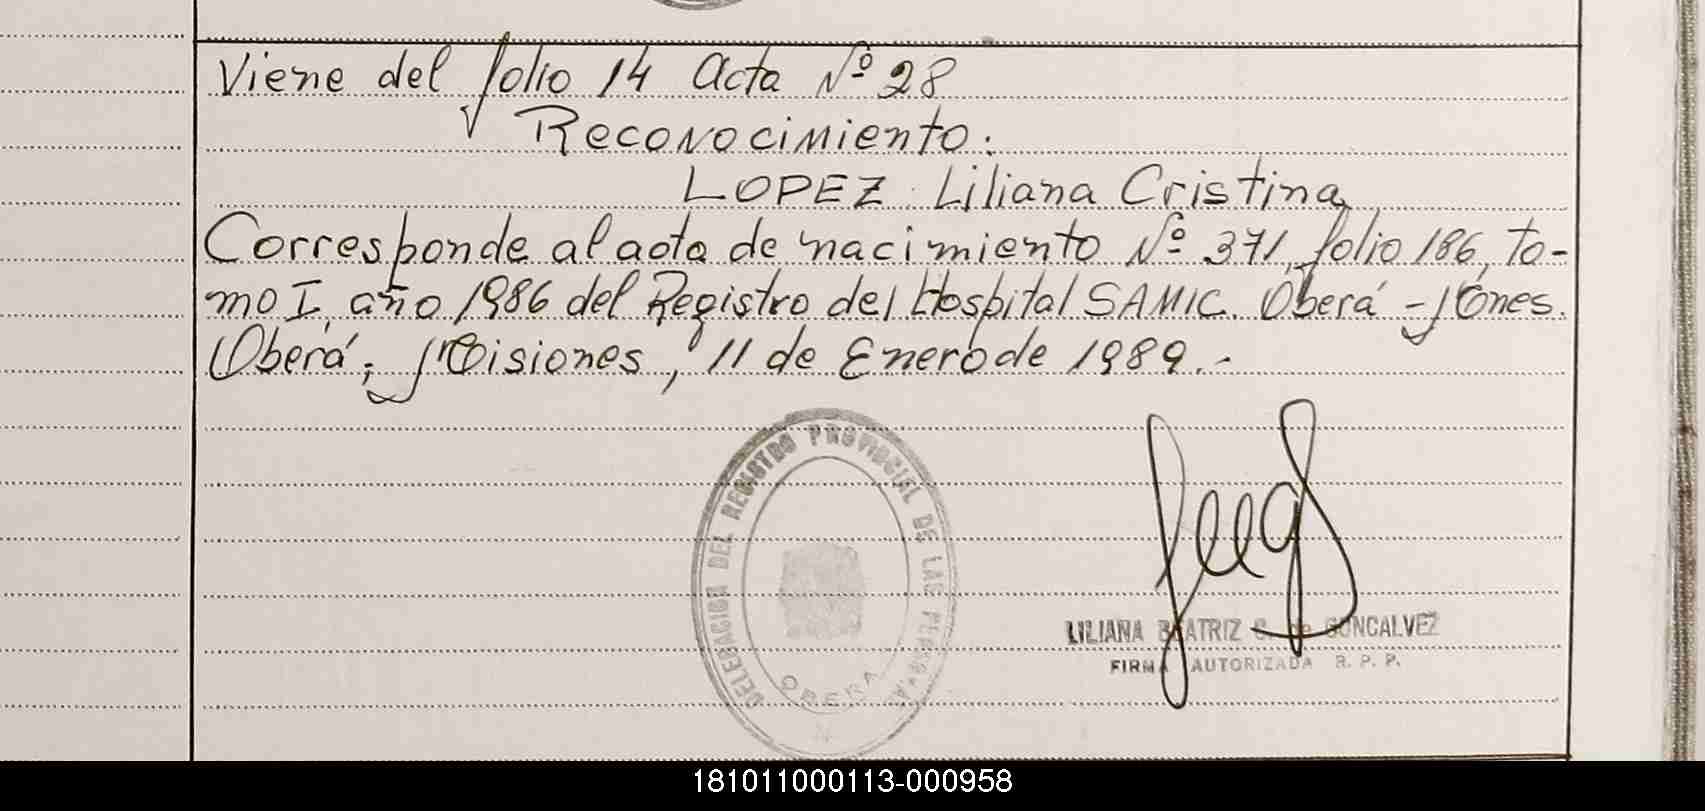 Viene del folio 14 Acta Nº 28
Reconocimiento:
LOPEZ Liliana Cristina
Corresponde al acta de nacimiento Nº 371, folio 186, to-
mo I, año 1986 del Registro del Hospital SAMIC. Oberá - Mnes.
Oberá, Misiones, 11 de Enero de 1989.-
DELEGACION DEL REGISTRO PROVINCIAL DE LAS PERSONAS
OBERA
LILIANA BEATRIZ de GONCALVEZ
FIRMA AUTORIZADA R. P. P.
181011000113-000958